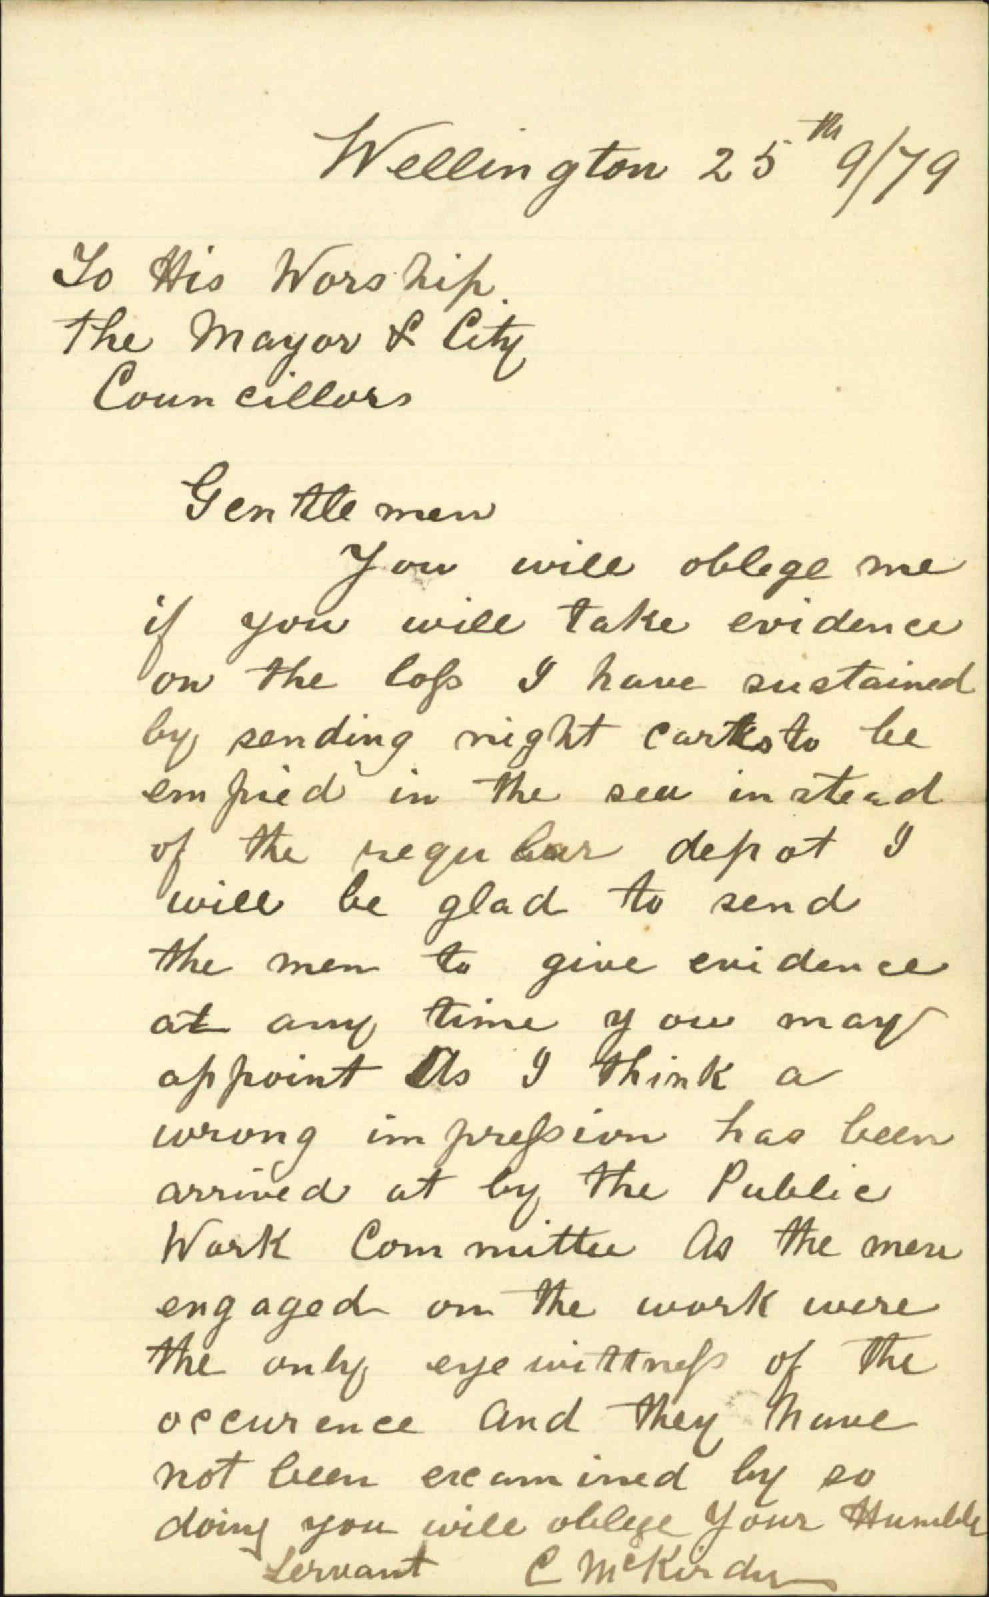 Wellington 25th 9/79
To His Worship
The Mayor & City
Councillors
Gentlemen
You will oblege me
if you will take evidence
on the loss I have sustained
by sending night carts to be
empied in the sea instead
of the regular depot I
will be glad to send
the men to give evidence
at any time you may
appoint As I think a
wrong impression has been
arrived at by the Public
Work Committee As the men
engaged on the work were
the only eye wittness of the
occurence And they have
not been examined by so
doing you will oblege Your Humble
Servant C McKirdy